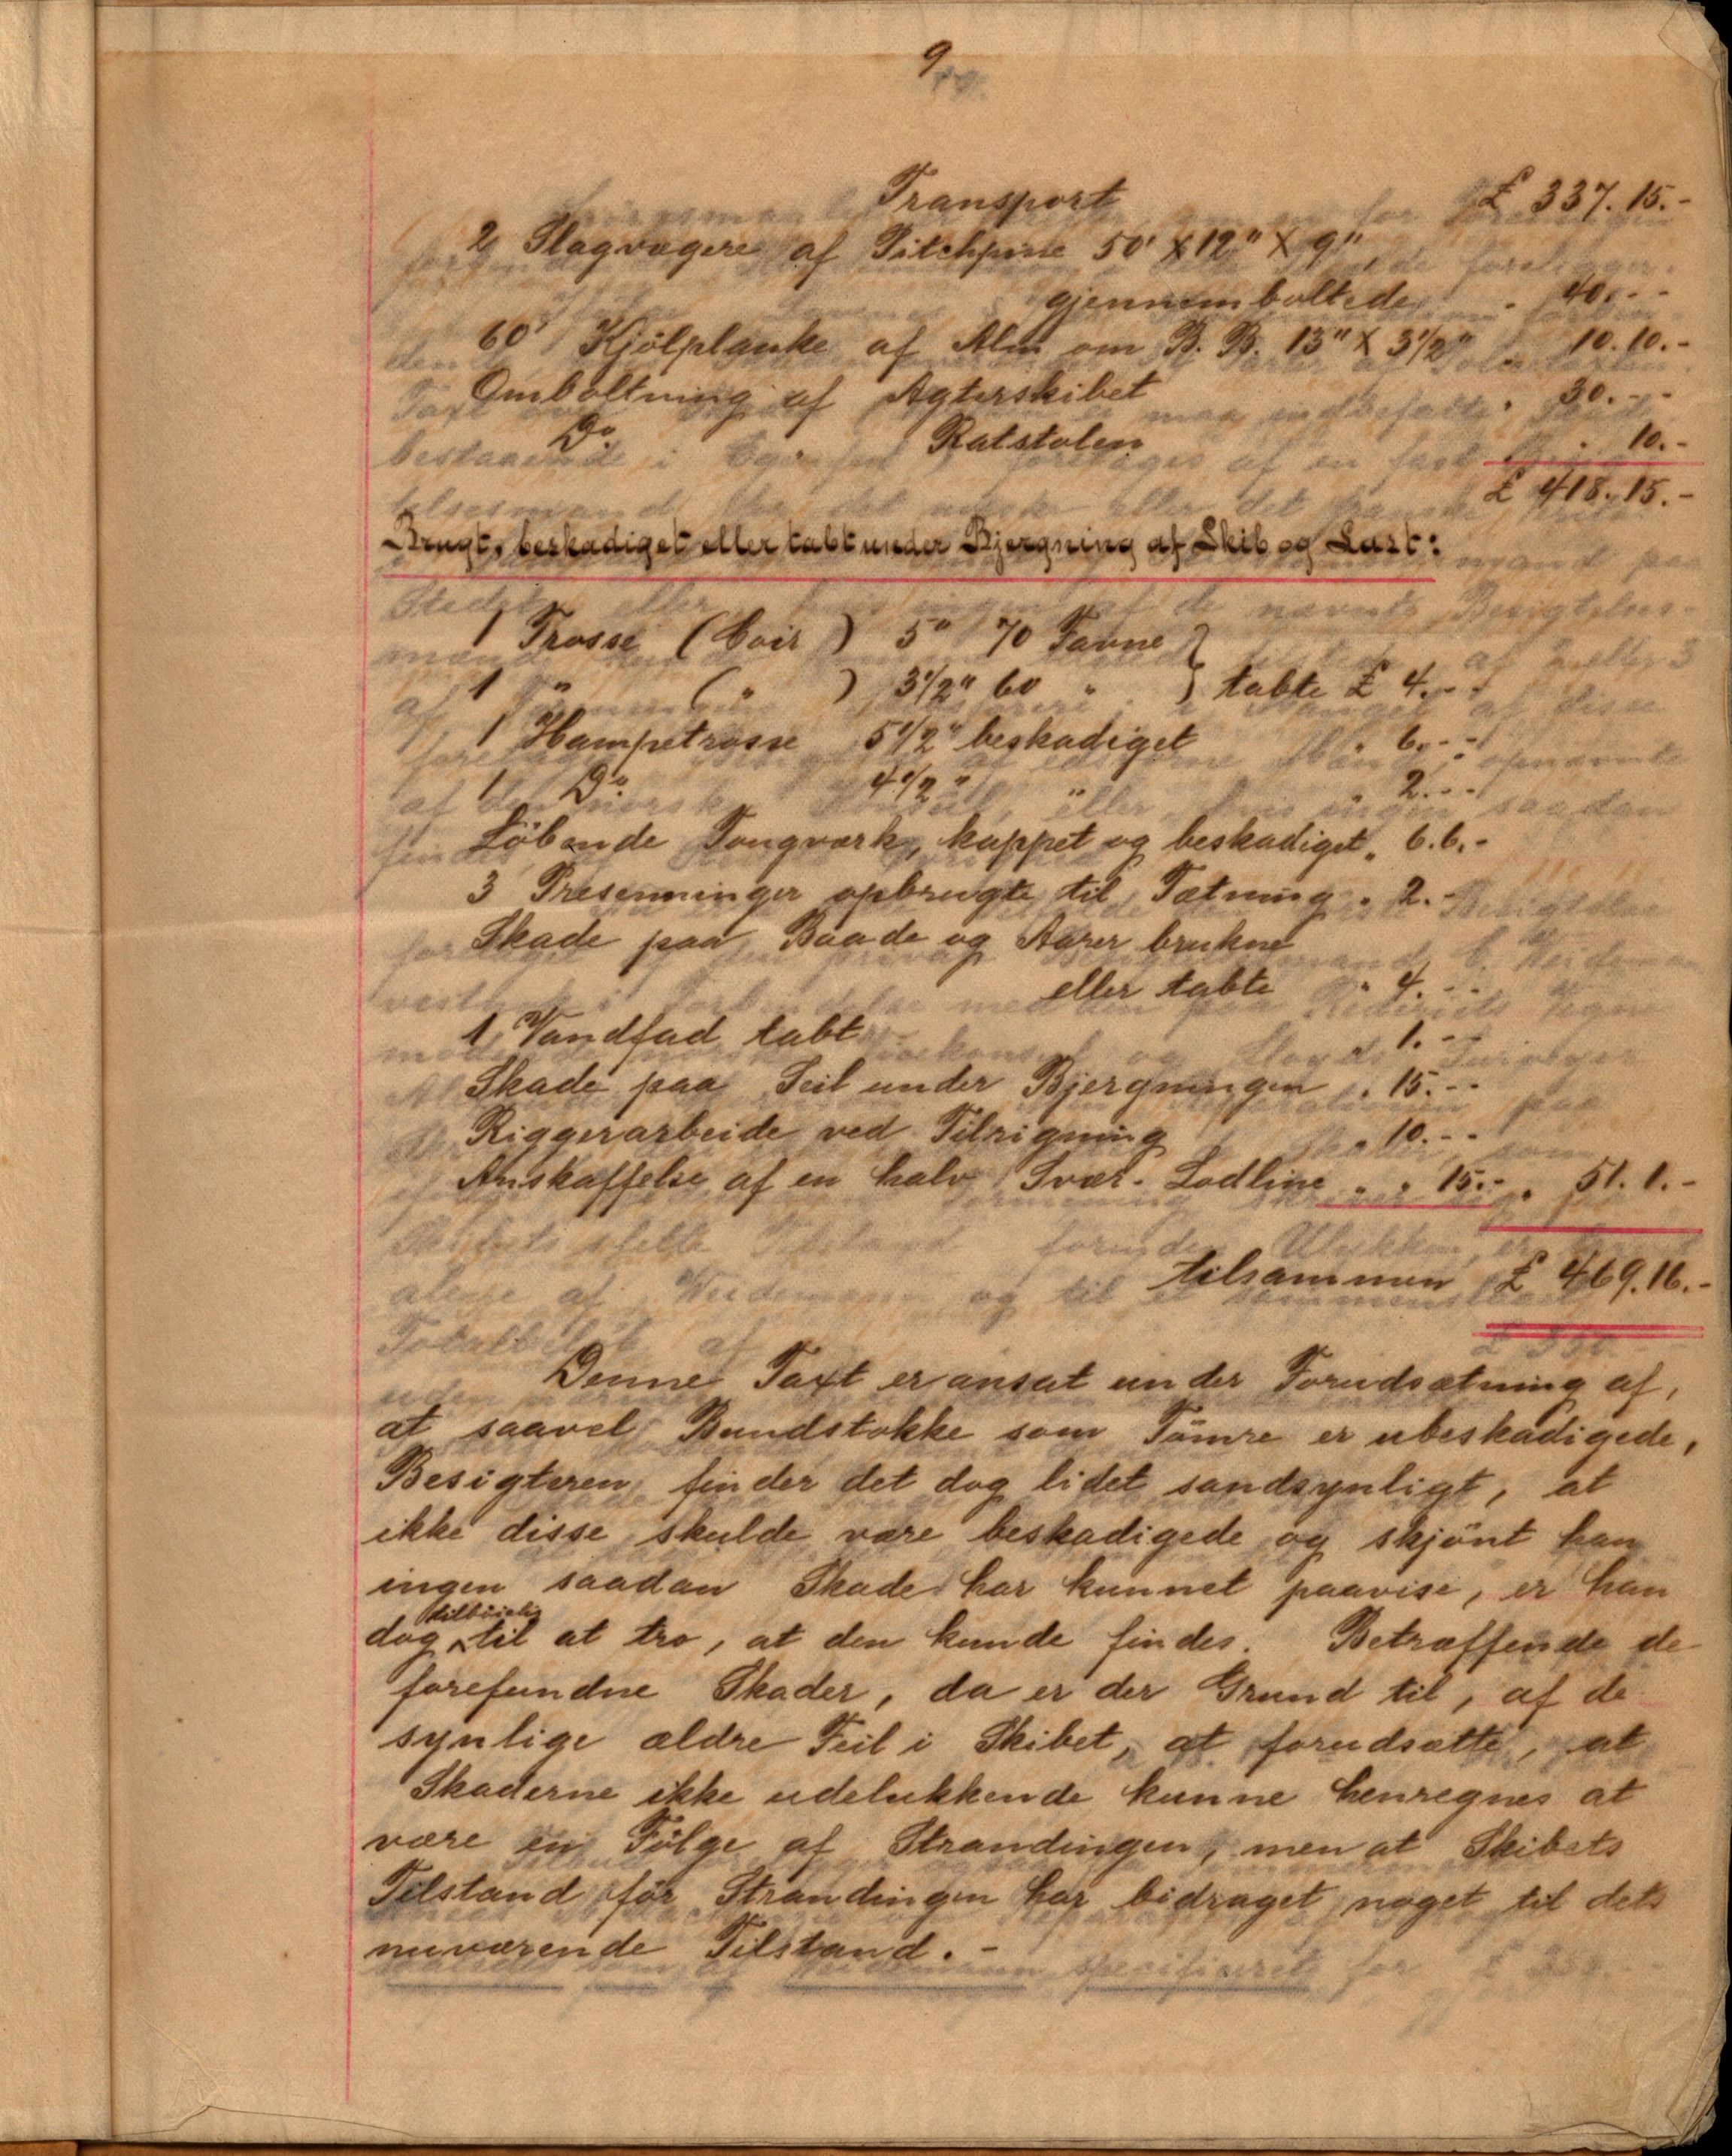 9
Transport £ 337.15.-
2 Slagvægere af Pitchpine 50' X 12" X 9"
gjennemboltede " 40.--
60' Kjölplanke af Alm om B. B. 13" X 3½" " 10.10.-
Omboltning af Agterskibet " 30.--
Do " Ratstolen " 10.-
£ 418.15.-
Brugt, beskadiget eller tabt under Bjergning af Skib og Last:
1 Trosse (Coir) 5" 70 Favne }
1 " ( " ) 3½" 60 " } tabte £ 4.--
1 Hampetrosse 5½" beskadiget " 6.--
1 Do 4½" " " 2.--
Löbende Tougværk, kappet og beskadiget " 6.6.-
3 Presenninger opbrugte til Tætning " 2.-
Skade paa Baade og Aarer brukne
eller tabte " 4.--
1 Vandfad tabt " 1.--
Skade paa Seil under Bjergningen " 15.--
Riggerarbeide ved Tilrigning " 10.--
Anskaffelse af en halv Svær-Lodline " " 15.- " 51.1.-
tilsammen £ 469.16.-
Denne Taxt er ansat under Forudsætning af,
at saavel Bundstokke som Tömre er ubeskadigede,
Besigteren finder det dog lidet sandsynligt, at
ikke disse skulde være beskadigede og skjönt han
ingen saadan Skade har kunnet paavise, er han
dog tilböielig til at tro, at den kunde findes. Betræffende de
forefundne Skader, da er der Grund til, af de
synlige ældre Feil i Skibet, at forudsætte, at
Skaderne ikke udelukkende kunne henregnes at
være en Fölge af Strandingen, men at Skibets
Tilstand för Strandingen har bidraget noget til dets
nuværende Tilstand.-